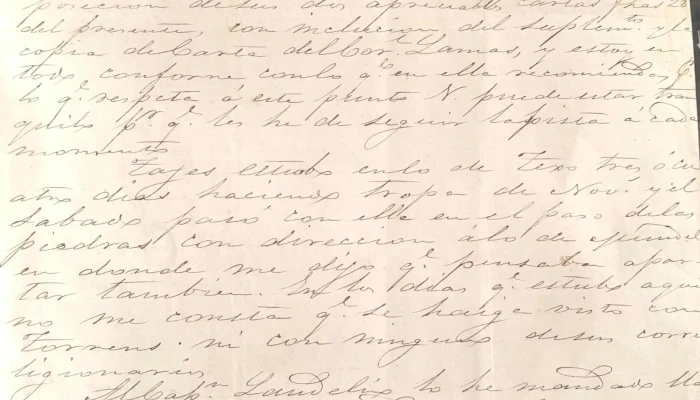 posecion de sus dos apreciables cartas fhas 20
del presente, con inclucion del suplemto y la
copia de Carta del Cor.l Lamas, y estoy en
todo conforme con lo q.e en ella recomienda,
lo q.e respeta á este punto N. puede estar tran
quilo p.r q.e les he de seguir la pista á cada
momento
Tajes estubo en lo de Texo tres ó cu
atro dias haciendo tropa de Nov.s y el
Sabado pasó con ella en el paso de las
piedras con direccion á lo de
en donde me dijo q.e pensaba apar
tar tambien. En los dias q.e estubo aqui
no me consta q.e se haiga visto con
Torrens. ni con ninguno de sus corre
ligionarios
Al Cap.n Laudelix lo he mandado